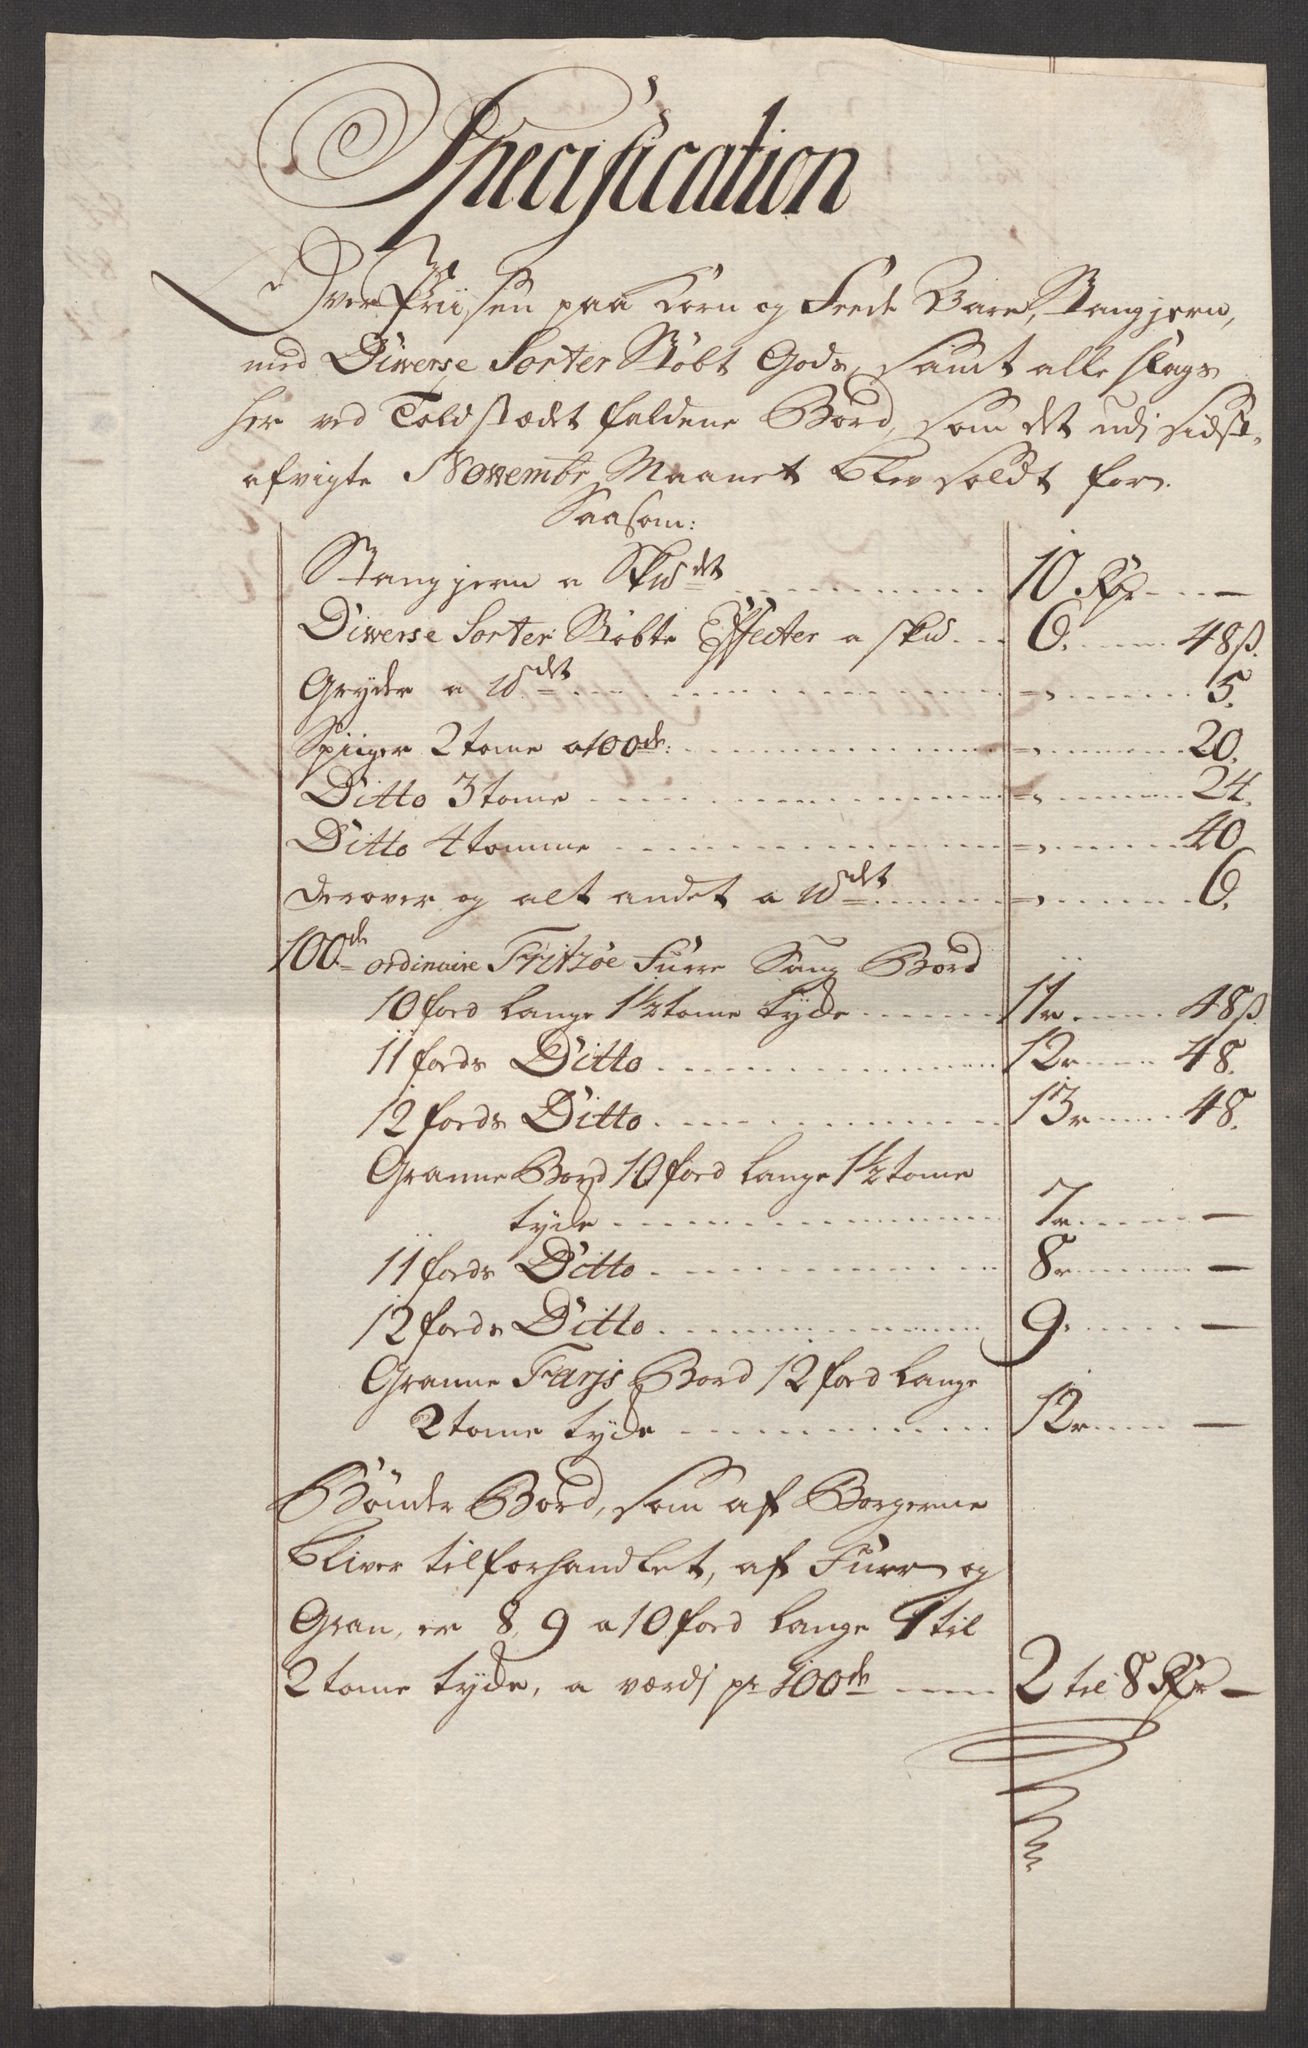 Specification
Over Priisen paa Korn og Feede Vare, Stangjern,
med Diverse Sorter Støbt Gods, samt alle slags
her ved Toldstædet faldene Bord, som det udi sidst-
afvigte Novembr Maanet blev soldt for.
Saasom:
Stangjern a Skudet 10 Rdr —
Diverse Sorter Støbte Effecter a skud 6. 48ß.
Gryder a ℔det 5.
Spiiger 2 tome a 100de: 20.
Ditto 3 tome 24.
Ditto 4 tomme 40
derover og alt andet a ℔det 6.
100de ordinaire Fritzøe Furre Saug Bord
10 fod lange 1½ tome tyde 11r 48ß.
11 fods Ditto 12r 48.
12 fods Ditto 13r 48.
Granne Bord 10 fod lange 1½ tome
tyde 7r —
11 fods Ditto 8r —
12 fods Ditto 9. —
Granne Farjs Bord 12 fod lange
2 tome tyde 12r —
Bønder Bord, som af Borgerne
bliver tilforhandlet, af Furr og
Gran, er 8, 9 a 10 fod lange 1 til
2 tome tyde, a værdj pr 100de 2 til 8 Rdr —